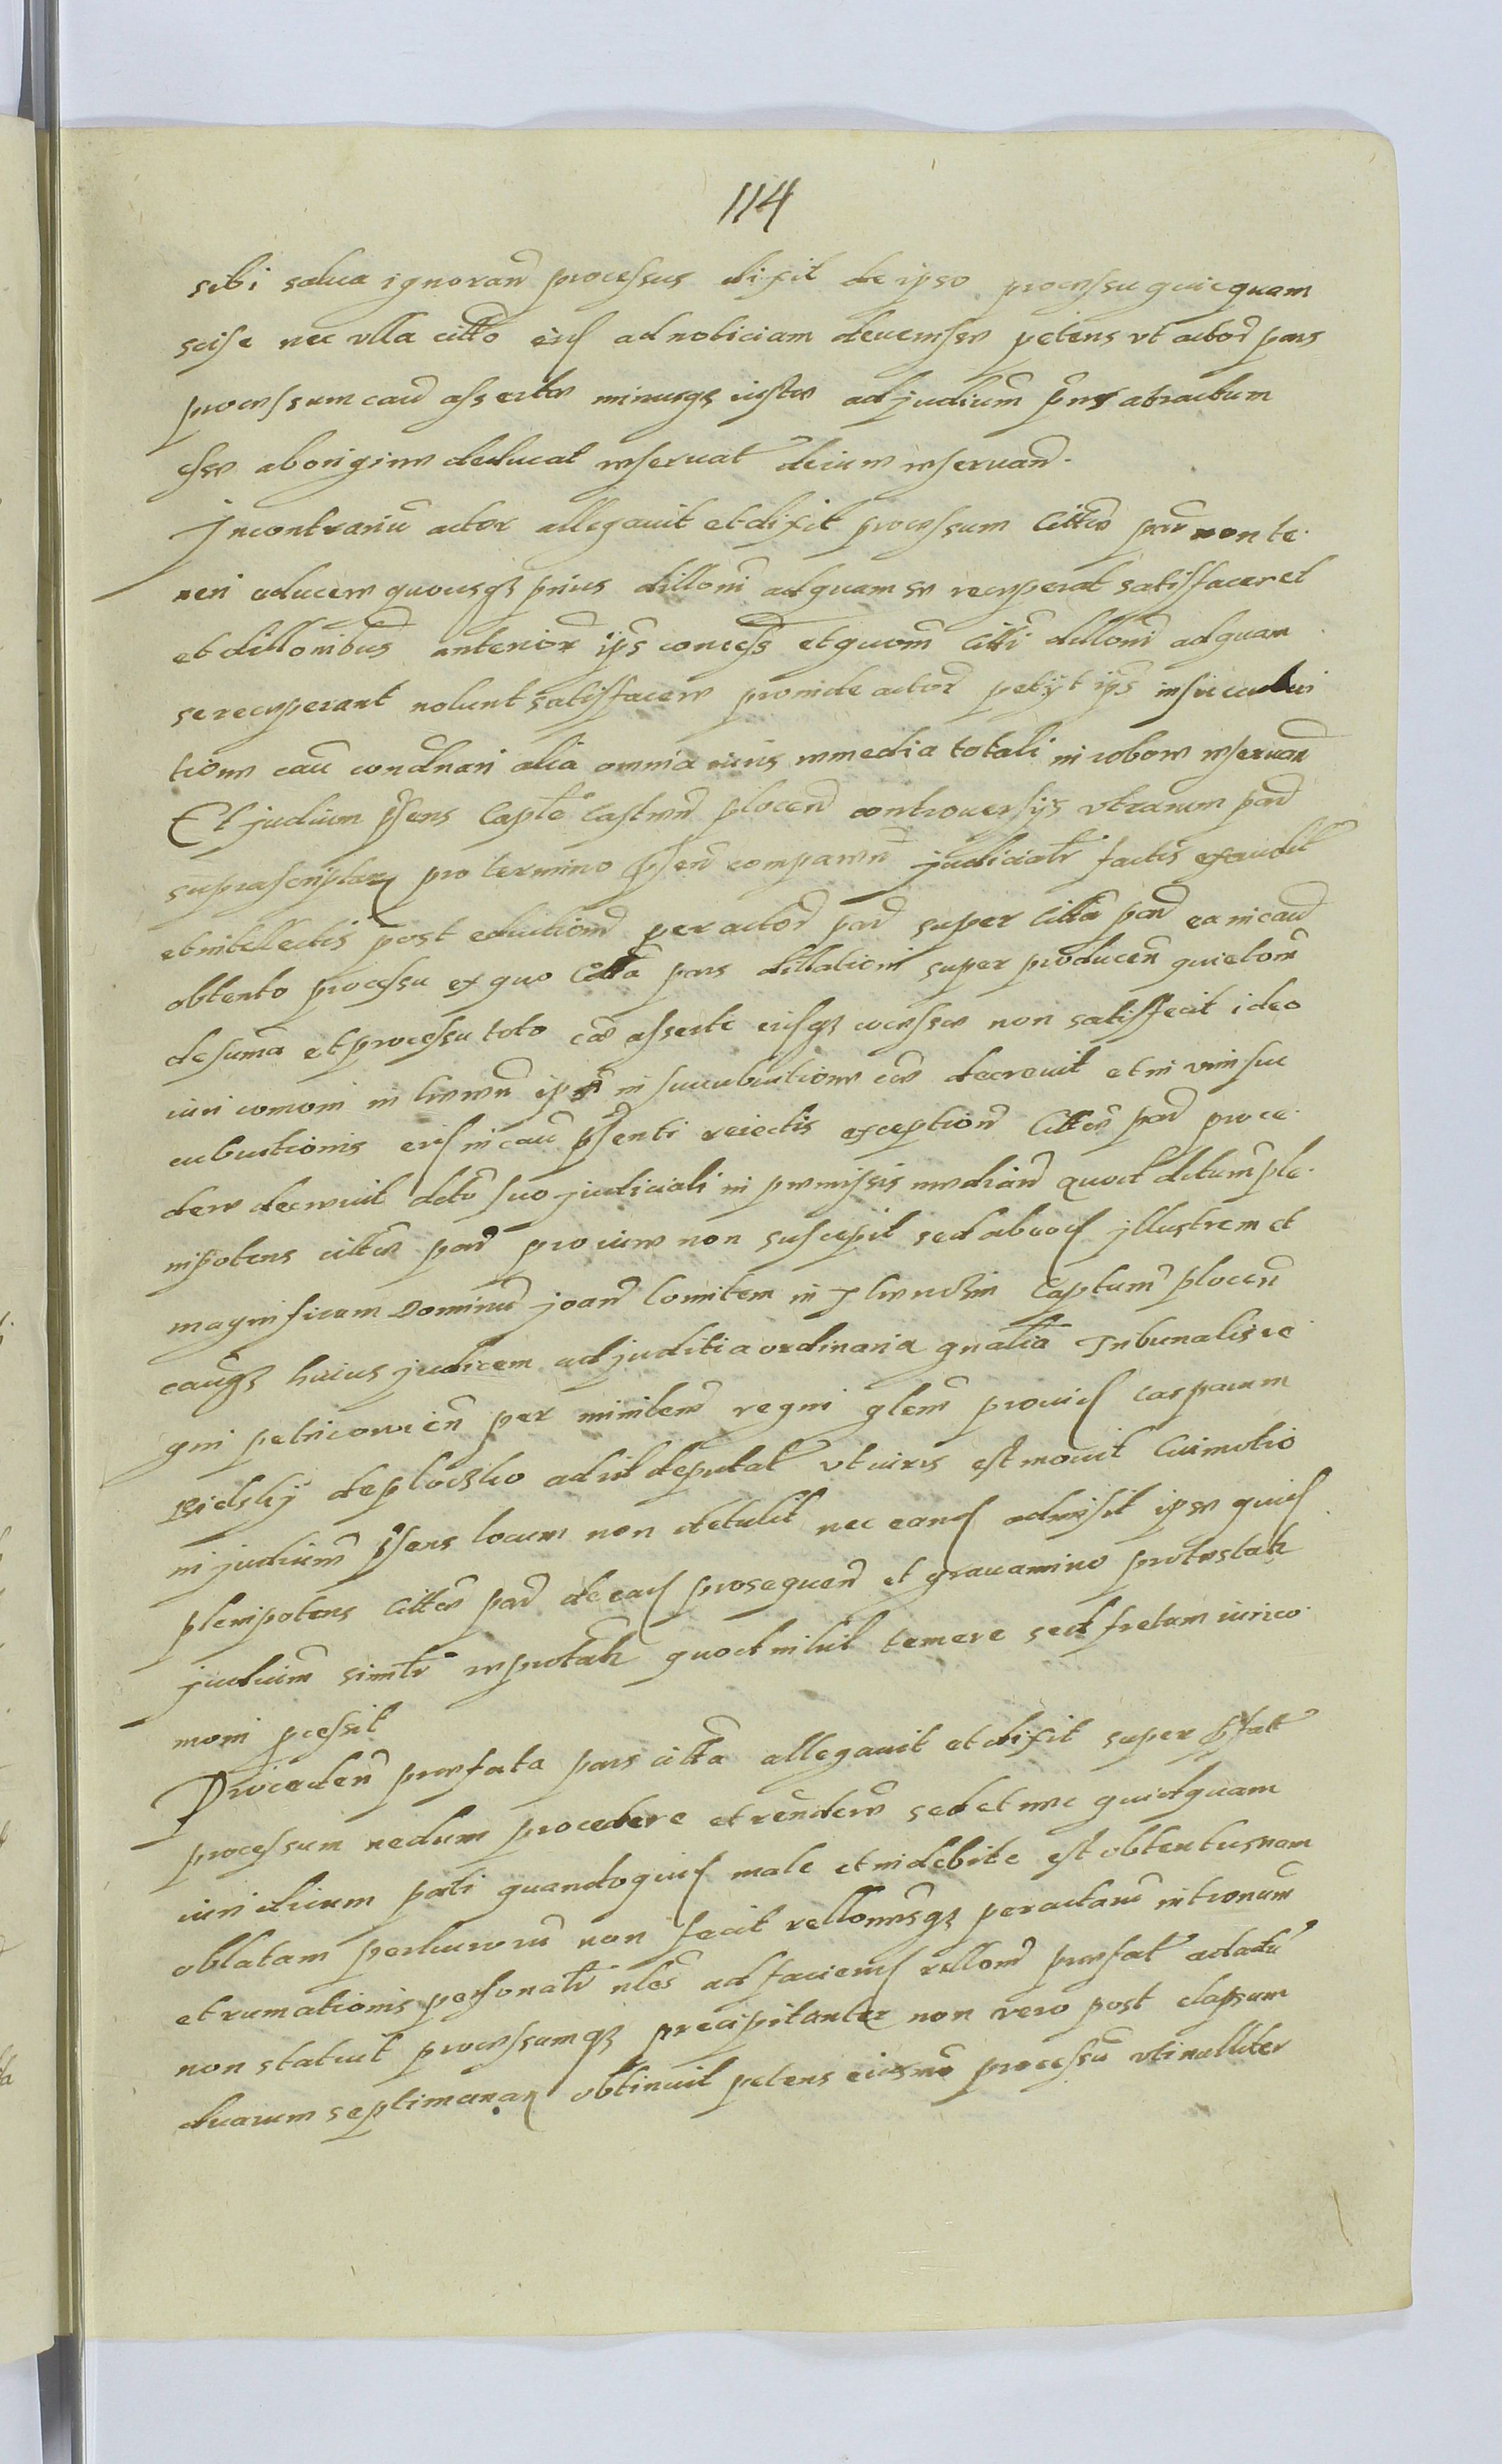 114
sibi salua ignoran processus dixit de ipso processu quicquam
scise nec vlla citto eius ad noticiam deuenisse petens vt actor pars
processum cau asserte minusq iuste ad judicium pns attractum
esse ab origine deducat reseruat decium reseruand.
Incontrariu actor allegauit et dixit processum citte par non te
neri educere quousq prius dilloni ad quam se recuperat satisfaceret
et dillonibus anterior ips concess et quom citti dilloni ad quam
se recuperant nolunt satisfacere proinde actor petijt ips insuccubi
tione cau condnari alia omnia iuris remedia totali in robore reseruan
Et judicium psens Capte Castren plocen controuersijs vtrarum par
suprascriptar pro termino psen comparen judicialr factis exaudit
et intellectis post eductiom per actor par super citta par ea in cau
obtento processu ex quo Citta pars dillationi super producen quietom
de suma et processu toto ca asserti eiusq concesse non satisfecit ideo
iuri comoni in ipm in succubuitione ce decreuit et in vim suc
cubuitionis eius in cau psenti reiectis exception Citte par proce
dere decreuit deto suo judiciali in premissis median Quod detum ple
nipotens citte par pro iure non suscepit sed ab eo illustrem et
magnificum Dominu joan Comitem in Capteum plocen
cauq huius judicem ad juditia ordinaria gnalia Tribunalis re
gni petricouien per ministem regni glem prouid casparum
Bielsky de ploczko ad id deputat vt iuris est mouit Cui motio
ni judicium psens locum non detulit nec eand admisit ipse quid
plenipotens citte par de ead prosequen et grauamine protestatr
judicium similr reprotatr quod nihil temere sed fretum iurico
moni pcessit
Proceden prefata pars citta allegauit et dixit super pfatt
processum nedum procedere et rendere sed et nec quidquam
iuri dicium pati quandoquid male et indebite est obtentus nam
oblatam non fecit relloneq peractam intronum
et rumationis personalr nles ad faciend rellom prefat actatu
non statuit processumq precipitanter non vero post elapsum
duarum septimanar obtinuit petens eiusmo processu vti nulliter